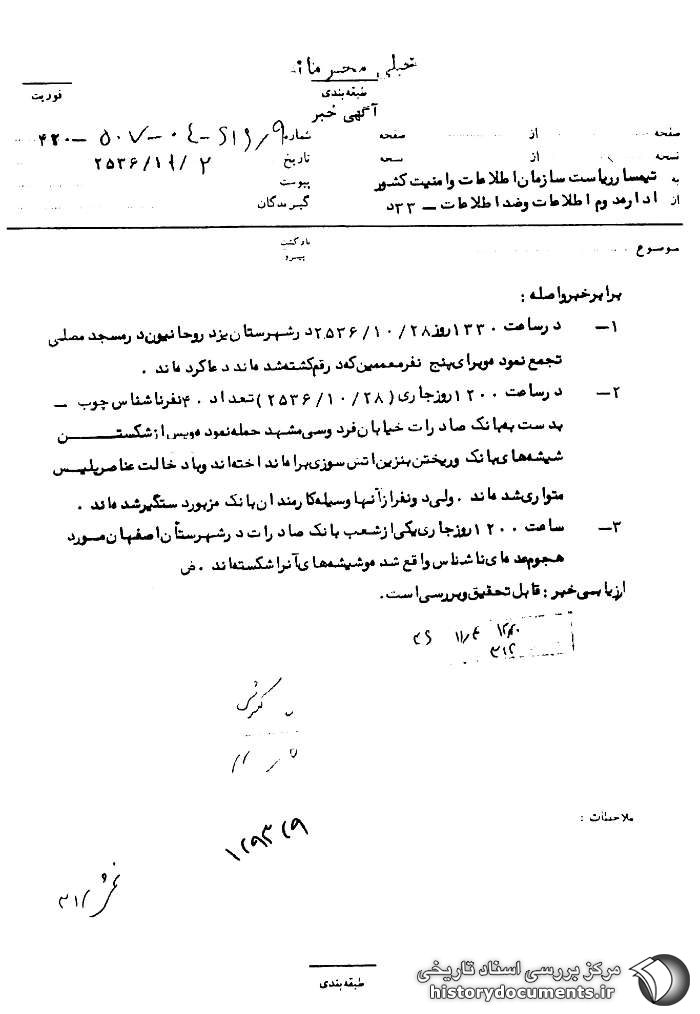 خیلی محرمانه
طبقه‌بندی
فوریت
آگهی خبر
صفحه از صفحه شماره ۴۲۰-۵۰۷-۰٤-
نسخه از نسخه تاریخ ۲۵۳۶/۱۱/۲
به تیمسار ریاست سازمان اطلاعات و امنیت کشور پیوست
از اداره دوم اطلاعات و ضد اطلاعات – د۳۳ گیرندگان
موضوع
بازگشت
پیرو
برابر خبر واصله :
۱– در ساعت ۱۳۳۰ روز ۲۵۳۶/۱۰/۲۸ در شهرستان یزد روحانیون در مسجد مصلی
تجمع نموده و برای پنج نفر معممین که در قم کشته شده اند دعا کرده اند .
۲– در ساعت ۱۲۰۰ روز جاری (۲۵۳۶/۱۰/۲۸) تعداد ۴۰ نفر ناشناس چوب –
بدست به بانک صادرات خیابان فردوسی مشهد حمله نموده و پس از شکستن
شیشه های بانک و ریختن بنزین اتش سوزی براه انداخته اند و با دخالت عناصر پلیس
متواری شده اند . ولی دو نفر از آنها وسیله کارمندان بانک مزبور دستگیر شده اند .
۳– ساعت ۱۲۰۰ روز جاری یکی از شعب بانک صادرات در شهرستان اصفهان مورد
هجوم عده ای ناشناس واقع شده و شیشه های آنرا شکسته اند . ض
ارزیابی خبر : قابل تحقیق و بررسی است.
۳۱۲
ملاحظات :
۱۲۹۳۲۹
۳۱۲
طبقه‌بندی
مرکز بررسی اسناد تاریخی
historydocuments.ir